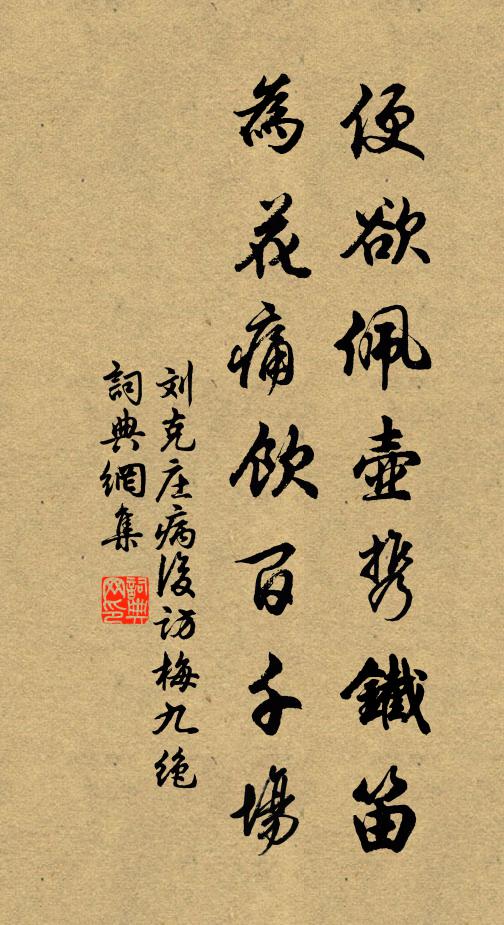 便欲佩壺携鐵笛
為花痛飲百千場
刘克庄病後访梅九绝
詞典網集
詞典网印